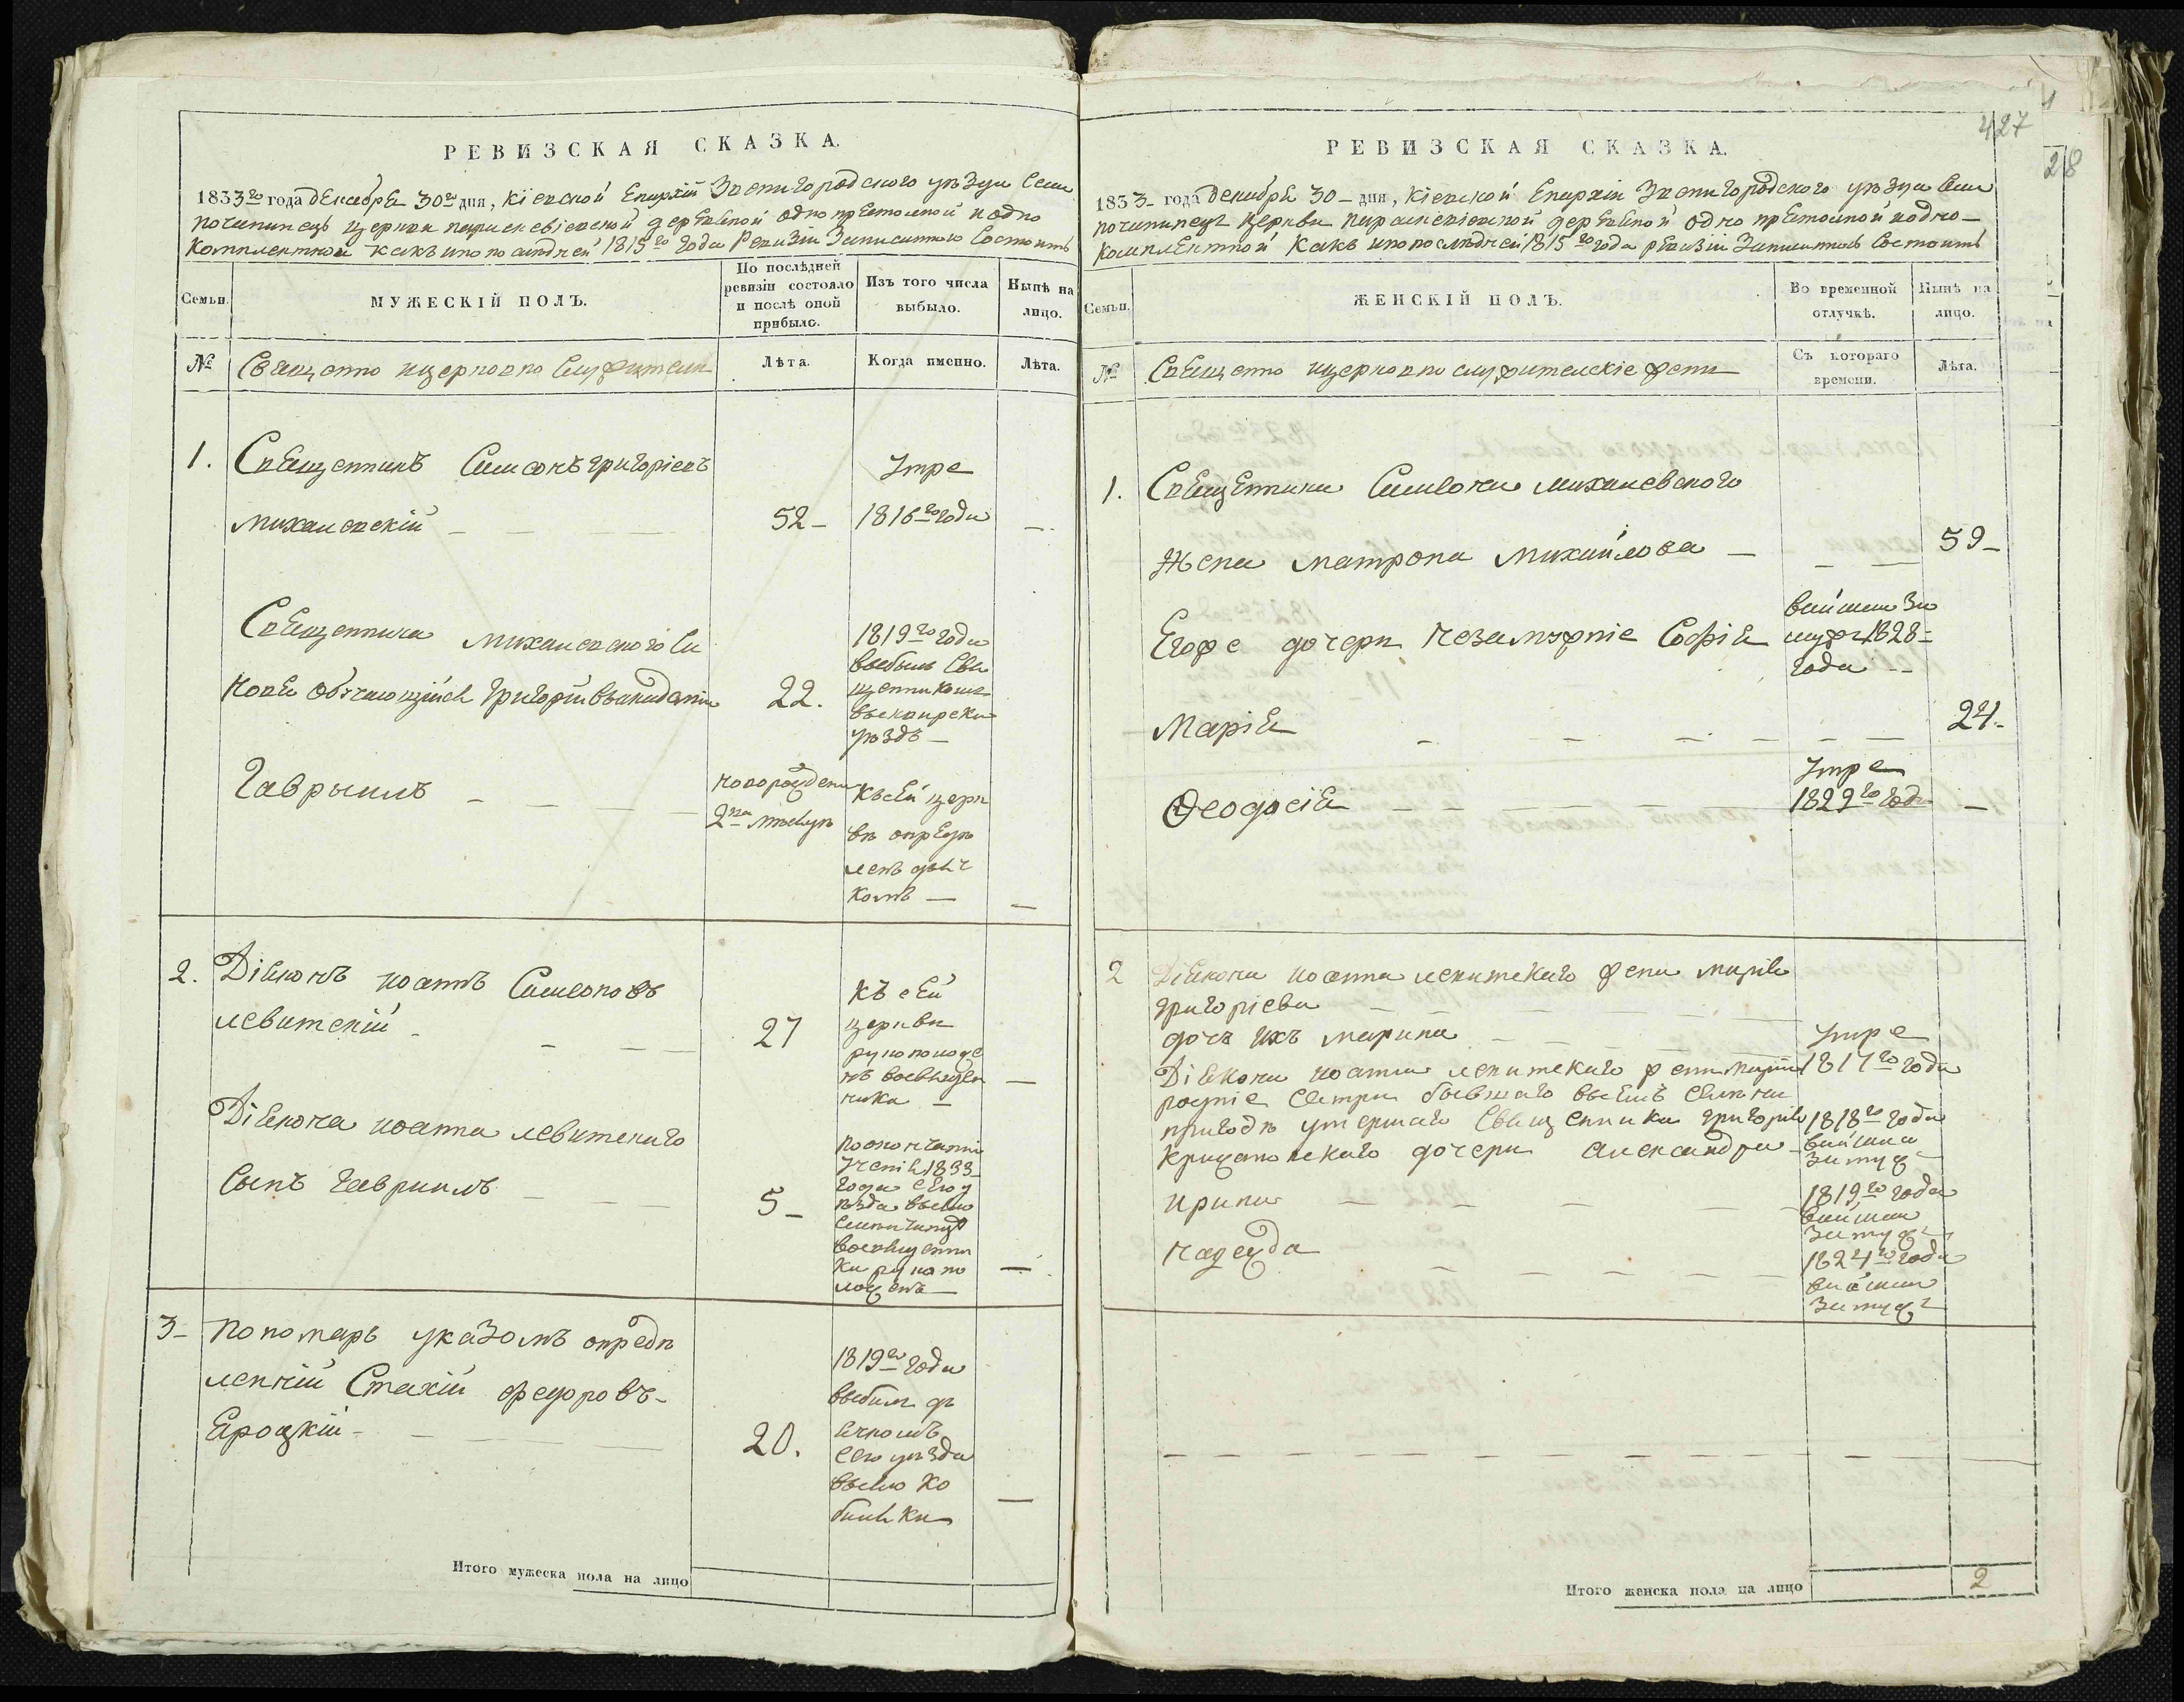 РЕВИЗСКАЯ СКАЗКА.
1833го года декабря 30го дня, Кіевской Епархіи Звенигородского уѣзда Села
Почапинецъ церкви параскевіевской деревяной одно престолной и одно
комплектной какъ и по послѣдней 1815го года Ревизіи Записанно Состоитъ
Семьи.
МУЖЕСКІЙ ПОЛЪ.
По послѣдней ревизіи состояло и послѣ оной прибыло.
Изъ того числа выбыло.
Нынѣ на лицо.
№
Священно и церковно Служители
Лѣта.
Когда именно.
Лѣта.
1. Священникъ Симеонъ григоріевъ
михалевскій 52 Умре 1816го года
Священника михалевского Сы
новя обучающійся григорій 22.
1819го года
выбылъ Свя
щенникомъ
уѣздъ
Гавріилъ
новорожденъ
2ва мѣсяца
къ сей церк
вѣ опредѣ
ленъ дьяч
комъ
2. Діяконъ иоаннъ Симеоновъ
левитскій 27
къ сей
церкви
рукоположе
нъ восвящен
ника
Діякона иоанна левитского
Сынъ гавриилъ 5
По окончаніи
ученія 1833
года сего у
ѣзда въ село
восвященни
ка рукопо
ложенъ
3 Пономаръ указомъ опредѣ
ленній Стахій федоровъ
Яроцкій 20.
1819го года
выбылъ дь
ячкомъ
сего уѣзда
въ село Ко
быляки
Итого мужеска пола на лицо
427
28
РЕВИЗСКАЯ СКАЗКА.
1833 года декабря 30 дня, Кіевской Епархіи Звенигородского уѣзда Села
почапинецъ церкви параскевіевской деревяной одно престолной и одно
комплектной какъ и по послѣдней 1815го года ревизіи Записанно Состоитъ
Семьи.
ЖЕНСКІЙ ПОЛЪ.
Во временной отлучкѣ.
Нынѣ на лицо.
№
Священно и церковно служителскіе жены
Съ котораго времени.
Лѣта.
1. Священника Симеона михалевского
Жена матрона михайлова 59
Егоже дочери незамужніе Софія
вийшла За
мужъ 1828
года
Марія 24
Феодосія
Умре
1829го года
2 Діякона иоанна левитского жена марія
григоріева
дочъ ихъ марина
Умре
1817го года
Діякона иоанна левитского жени маріи
родніе Сестри бывшаго въ семъ
приходѣ умершаго Священника григорія
дочери александра
1818го года
вийшла
замужъ
ирина
1819го года
вийшла
замужъ
надежда
1824го года
вийшла
замужъ
Итого женска пола на лицо 2